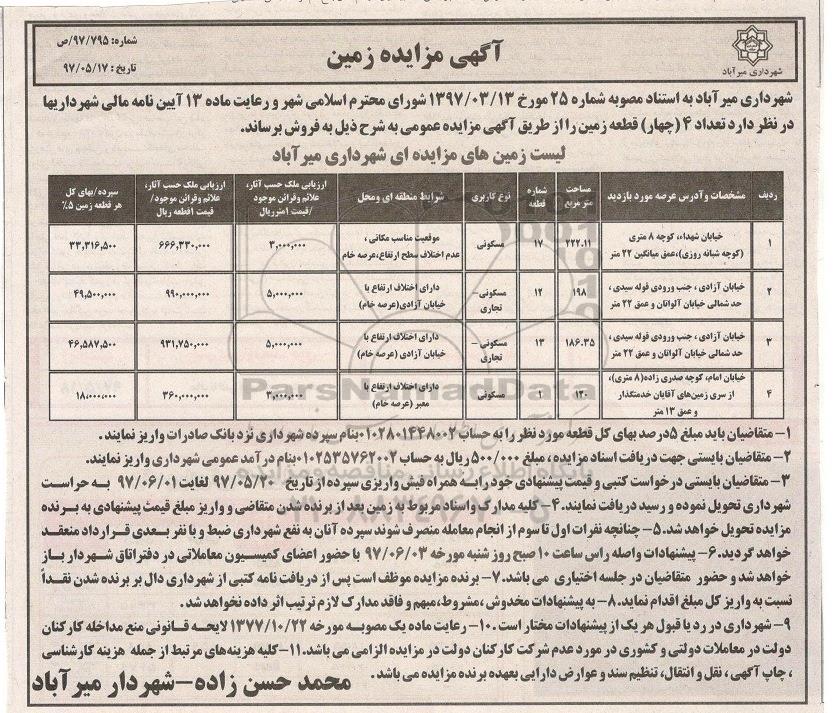 شماره: ۹۷/۷۹۵/ص
تاریخ: ۹۷/۰۵/۱۷
آگهی مزایده زمین
شهرداری میرآباد
شهرداری میرآباد به استناد مصوبه شماره ۲۵ مورخ ۱۳۹۷/۰۳/۱۳ شورای محترم اسلامی شهر و رعایت ماده ۱۳ آیین نامه مالی شهرداریها
در نظر دارد تعداد ۴ (چهار) قطعه زمین را از طریق آگهی مزایده عمومی به شرح ذیل به فروش برساند.
لیست زمین های مزایده ای شهرداری میرآباد
ردیف مشخصات وآدرس عرصه مورد بازدید مساحت متر مربع شماره قطعه نوع کاربری شرایط منطقه ای ومحل ارزیابی ملک حسب آثار، علائم وقرائن موجود /قیمت ۱متر ریال ارزیابی ملک حسب آثار، علائم وقرائن موجود/ قیمت ۱قطعه ریال سپرده/بهای کل هر قطعه زمین ۵٪
۱ خیابان شهداء، کوچه ۸ متری (کوچه شبانه روزی)،عمق میانگین ۲۲ متر ۲۲۲.۱۱ ۱۷ مسکونی موقعیت مناسب مکانی ، عدم اختلاف سطح ارتفاع،عرصه خام ۳,۰۰۰,۰۰۰ ۶۶۶,۳۳۰,۰۰۰ ۳۳,۳۱۶,۵۰۰
۲ خیابان آزادی ، جنب ورودی قوله سیدی ، حد شمالی خیابان آلواتان و عمق ۲۲ متر ۱۹۸ ۱۲ مسکونی– تجاری دارای اختلاف ارتفاع با خیابان آزادی(عرصه خام) ۵,۰۰۰,۰۰۰ ۹۹۰,۰۰۰,۰۰۰ ۴۹,۵۰۰,۰۰۰
۳ خیابان آزادی ، جنب ورودی قوله سیدی ، حد شمالی خیابان آلواتان و عمق ۲۲ متر ۱۸۶.۳۵ ۱۳ مسکونی – تجاری دارای اختلاف ارتفاع با خیابان آزادی (عرصه خام) ۵,۰۰۰,۰۰۰ ۹۳۱,۷۵۰,۰۰۰ ۴۶,۵۸۷,۵۰۰
۴ خیابان امام، کوچه صدری زاده(۸ متری)، از سری زمین‌های آقایان خدمتگذار و عمق ۱۳ متر ۱۲۰ ۱ مسکونی دارای اختلاف ارتفاع با معبر (عرصه خام) ۳,۰۰۰,۰۰۰ ۳۶۰,۰۰۰,۰۰۰ ۱۸,۰۰۰,۰۰۰
۱– متقاضیان باید مبلغ ۵درصد بهای کل قطعه مورد نظر را به حساب ۰۱۰۲۸۰۱۴۴۸۰۰۲ بنام سپرده شهرداری نزد بانک صادرات واریز نمایند.
۲– متقاضیان بایستی جهت دریافت اسناد مزایده ، مبلغ ۵۰۰/۰۰۰ ریال به حساب ۰۱۰۲۵۳۵۷۶۲۰۰۲ بنام درآمد عمومی شهرداری واریز نمایند.
۳– متقاضیان بایستی درخواست کتبی و قیمت پیشنهادی خود را به همراه فیش واریزی سپرده از تاریخ ۹۷/۰۵/۲۰ لغایت ۹۷/۰۶/۰۱ به حراست
شهرداری تحویل نموده و رسید دریافت نمایند. ۴– کلیه مدارک و اسناد مربوط به زمین بعد از برنده شدن متقاضی و واریز مبلغ قیمت پیشنهادی به برنده
مزایده تحویل خواهد شد. ۵– چنانچه نفرات اول تا سوم از انجام معامله منصرف شوند سپرده آنان به نفع شهرداری ضبط و با نفر بعدی قرارداد منعقد
خواهد گردید. ۶– پیشنهادات واصله راس ساعت ۱۰ صبح روز شنبه مورخه ۹۷/۰۶/۰۳ با حضور اعضای کمیسیون معاملاتی در دفتر اتاق شهردار باز
خواهد شد و حضور متقاضیان در جلسه اختیاری می باشد. ۷– برنده مزایده موظف است پس از دریافت نامه کتبی از شهرداری دال بر برنده شدن نقداً
نسبت به واریز کل مبلغ اقدام نماید. ۸– به پیشنهادات مخدوش ،مشروط،مبهم و فاقد مدارک لازم ترتیب اثر داده نخواهد شد.
۹– شهرداری در رد یا قبول هر یک از پیشنهادات مختار است. ۱۰– رعایت ماده یک مصوبه مورخه ۱۳۷۷/۱۰/۲۲ لایحه قانونی منع مداخله کارکنان
دولت در معاملات دولتی و کشوری در مورد عدم شرکت کارکنان دولت در مزایده الزامی می باشد. ۱۱–کلیه هزینه‌های مرتبط از جمله هزینه کارشناسی
، چاپ آگهی ، نقل و انتقال، تنظیم سند و عوارض دارایی بعهده برنده مزایده می باشد.
محمد حسن زاده–شهردار میرآباد
ParsNamadData
پایگاه اطلاع رسانی مناقصه و مزایده